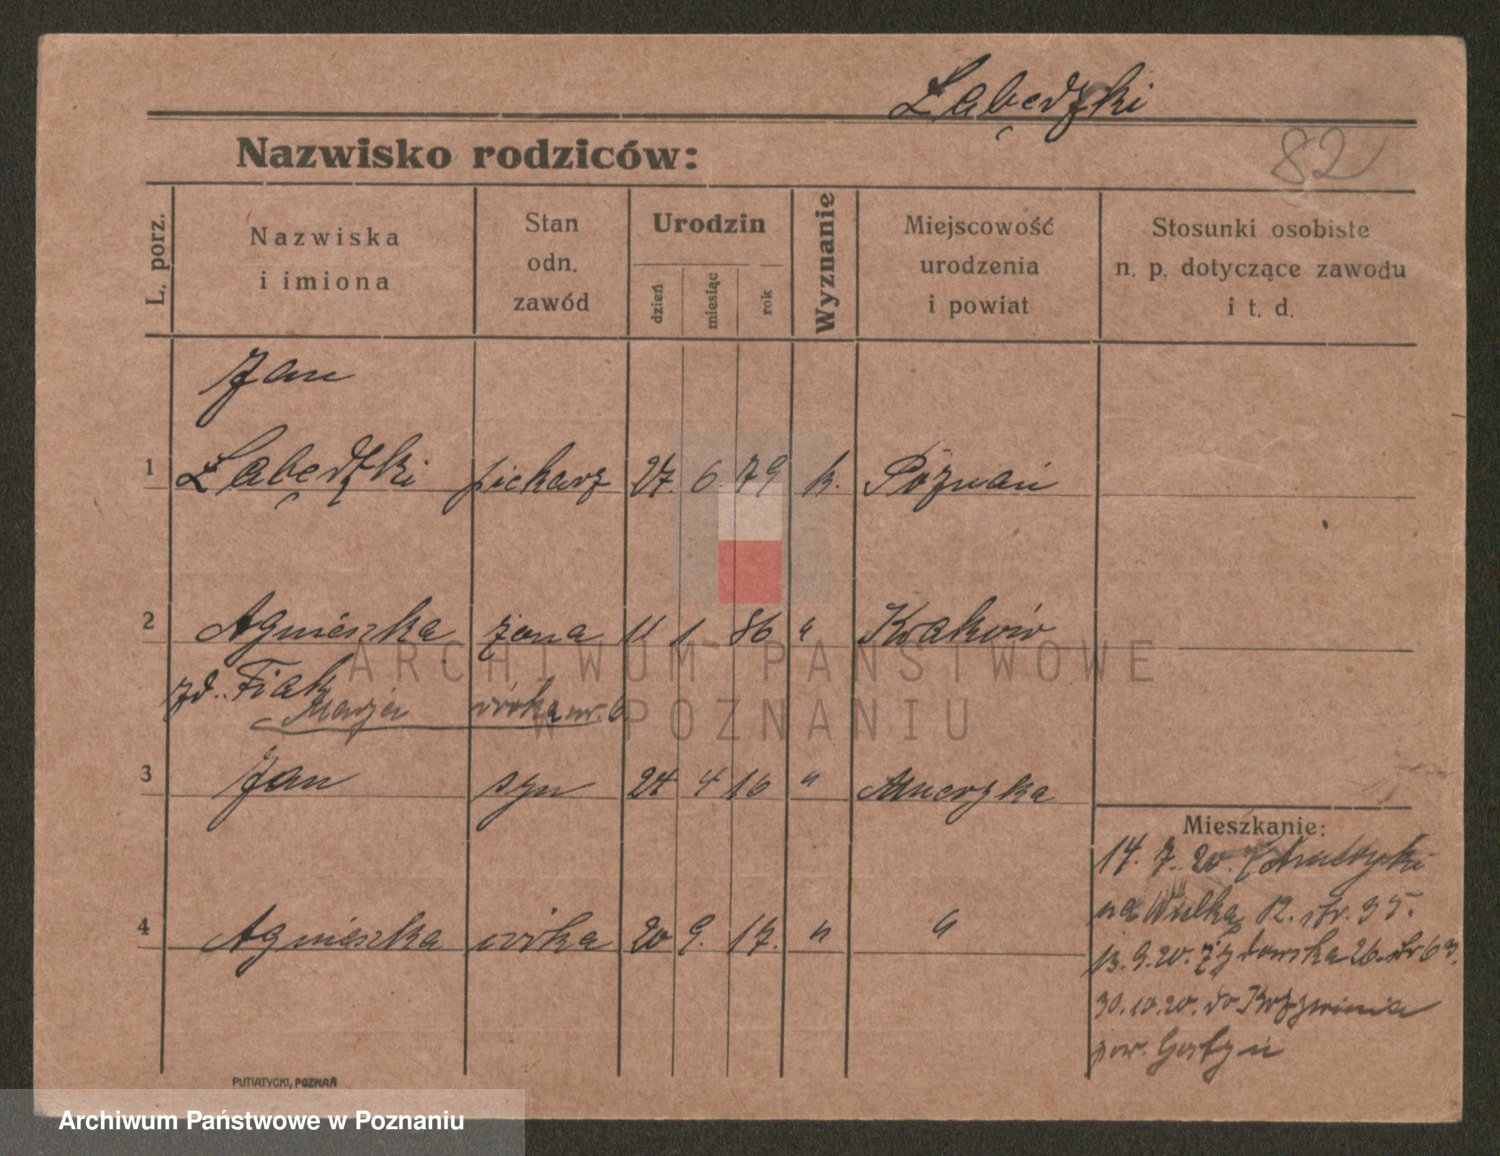 Łabędzki
82
Nazwisko rodziców:
L. porz.
Nazwiska i imiona
Stan odn. zawód
Urodzin
dzień
miesiąc
rok
Wyznanie
Miejscowość urodzenia i powiat
Stosunki osobiste n. p. dotyczące zawodu i t. d.
Jan
1 Łabędzki piekarz 27. 6 79 k. Poznań
2 Agnieszka żona 11 1 86 " Kraków
zd. Fiak
Marja córka nr. 6
3 Jan syn 24 4 16 "
4 Agnieszka córka 20 9. 17. " "
Mieszkanie:
14. 7. 20.
na Wielką 12. str. 95.
13. 9. 20. Żydowska 26.
30. 10. 20. do
pow. Gostyń
PUTIATYCKI, POZNAŃ
ARCHIWUM PAŃSTWOWE
W POZNANIU
Archiwum Państwowe w Poznaniu